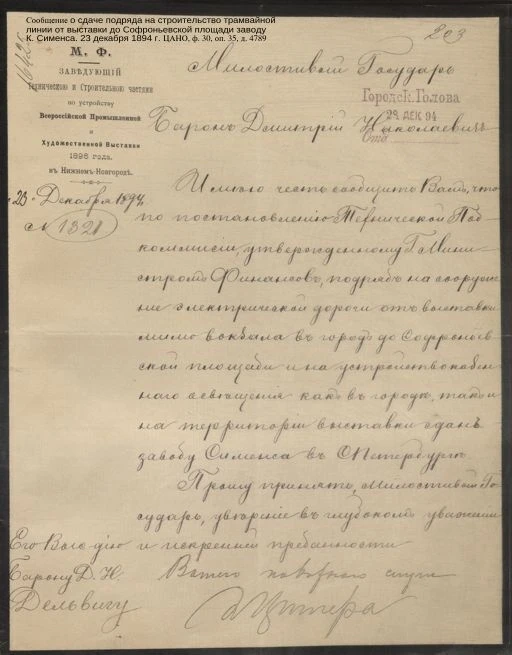 Сообщение о сдаче подряда на строительство трамвайной
линии от выставки до Софроньевской площади заводу
К. Сименса. 23 декабря 1894 г. ЦАНО, ф. 30, оп. 35, д. 4789
203
М. Ф.
ЗАВѢДУЮЩІЙ
Техническою и Строительною частями
по устройству
Всероссійской Промышленной
и
Художественной Выставки
1896 года,
въ Нижнемъ-Новгородѣ.
23 Декабря 1894
№ 1321
Милостивый Государь
Городск. Голова
23 ДЕК 94
Баронъ Дмитрій Николаевичъ
Имѣю честь сообщить Вамъ, что
по постановленію Технической Под-
комиссіи, утвержденному Г. Мини-
стромъ Финансовъ, подрядъ на сооруже-
ніе электрической дороги отъ выставки
мимо вокзала въ городъ до Софроньев-
ской площади и на устройство
освѣщенія какъ въ городѣ, такъ и
на территоріи выставки сданъ
заводу Сименса въ СПетербургѣ.
Прошу принять, Милостивый Го-
сударь, увѣреніе въ глубокомъ уваженіи
и искренней преданности
Вашего покорнаго слуги
Его Выс-дію
Барону Д. Н.
Дельвигу